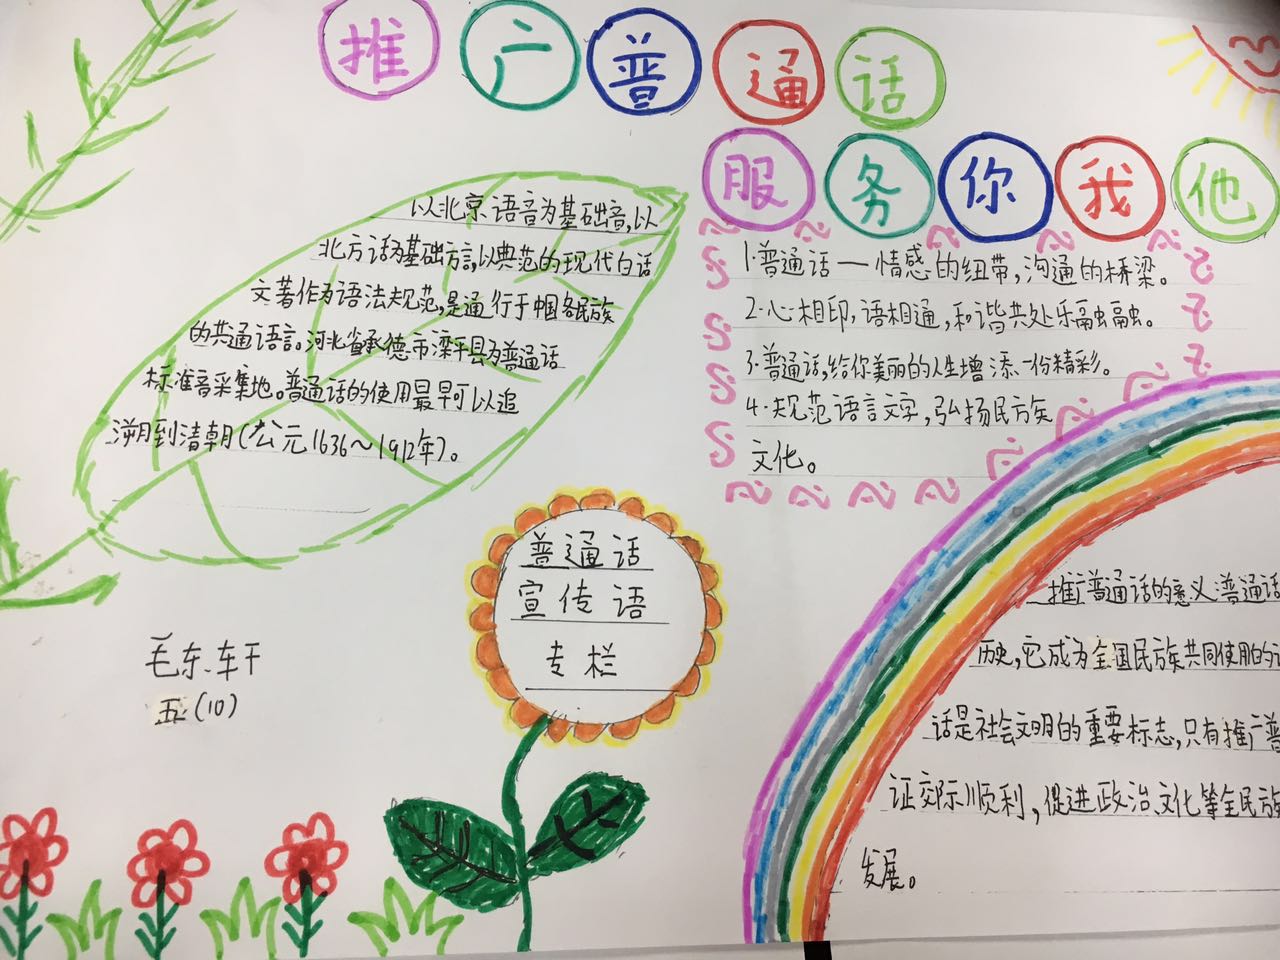 推广普通话
服务你我他
以北京语音为基础音,以
北方话为基础方言,以典范的现代白话
文著作为语法规范,是通行于中国各民族
的共通语言。河北省承德市滦平县为普通话
标准音采集地。普通话的使用最早可以追
溯到清朝(公元1636~1912年)。
1.普通话—情感的纽带,沟通的桥梁。
2.心相印,语相通,和谐共处乐融融。
3.普通话,给你美丽的人生增添一份精彩。
4.规范语言文字,弘扬民族
文化。
普通话
宣传语
专栏
毛东轩
五(10)
推广普通话的意义:普通话
历史,它成为全国民族共同使用的
话是社会文明的重要标志,只有推广普
证交际顺利,促进政治、文化等全民族
发展。